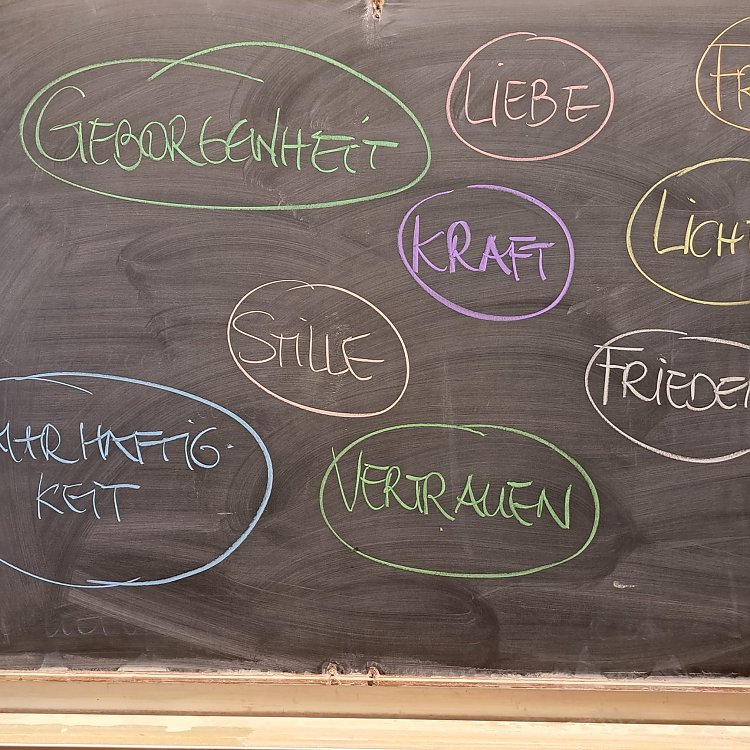 GEBORGENHEIT
LIEBE
FR
KRAFT
LICHT
STILLE
FRIEDEN
AHRHAFTIG-
KEIT
VERTRAUEN